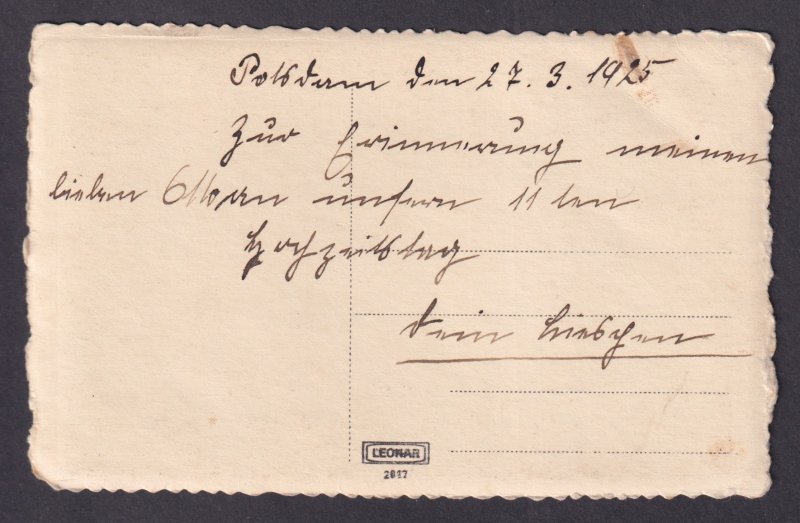 Potsdam den 27.3.1925
Zur Erinnerung meinen
lieben Otto an unsern 11 ten
Hochzeitstag
Dein Lieschen
LEONAR
2017